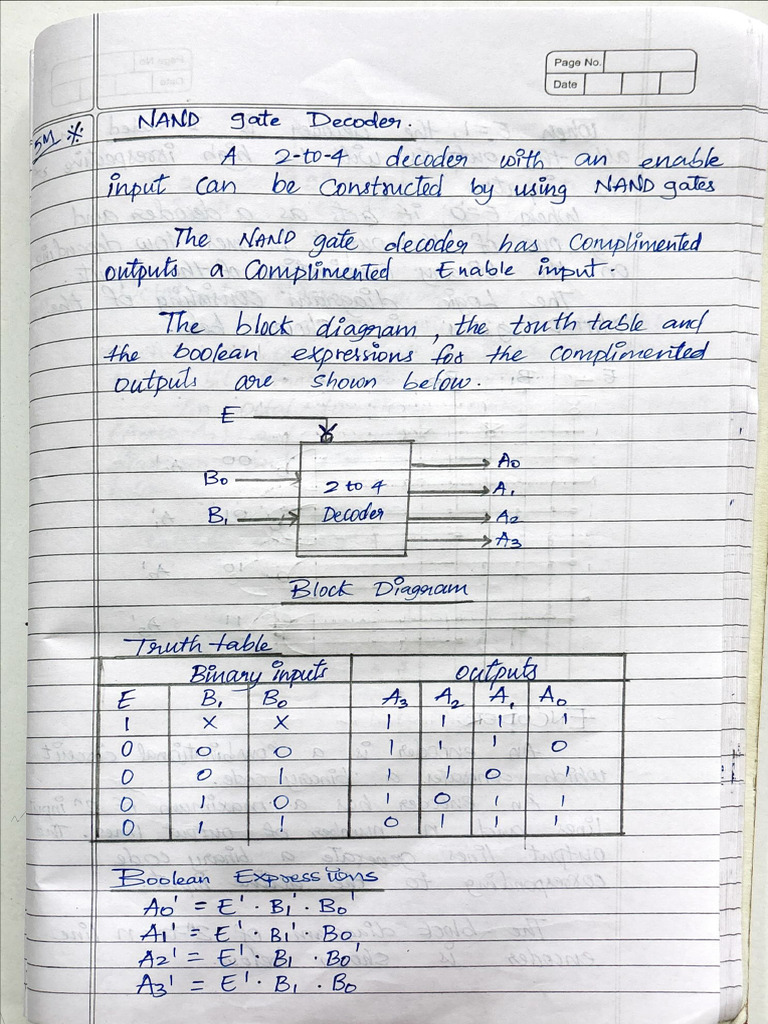 Page No.
Date
5M *
NAND gate Decoder.
A 2-to-4 decoder with an enable
input can be constructed by using NAND gates
The NAND gate decoder has Complimented
outputs a Complimented Enable input.
The block diagram, the truth table and
the boolean expressions for the complimented
outputs are shown below.
E
B0 2 to 4 A0
A1
B1 Decoder A2
A3
Block Diagram
Truth table
Binary inputs outputs
E B1 B0 A3 A2 A1 A0
1 X X 1 1 1 1
0 0 0 1 1 1 0
0 0 1 1 1 0 1
0 1 0 1 0 1 1
0 1 1 0 1 1 1
Boolean Expressions
A0' = E' · B1' · B0'
A1' = E' · B1' · B0
A2' = E' · B1 · B0'
A3' = E' · B1 · B0